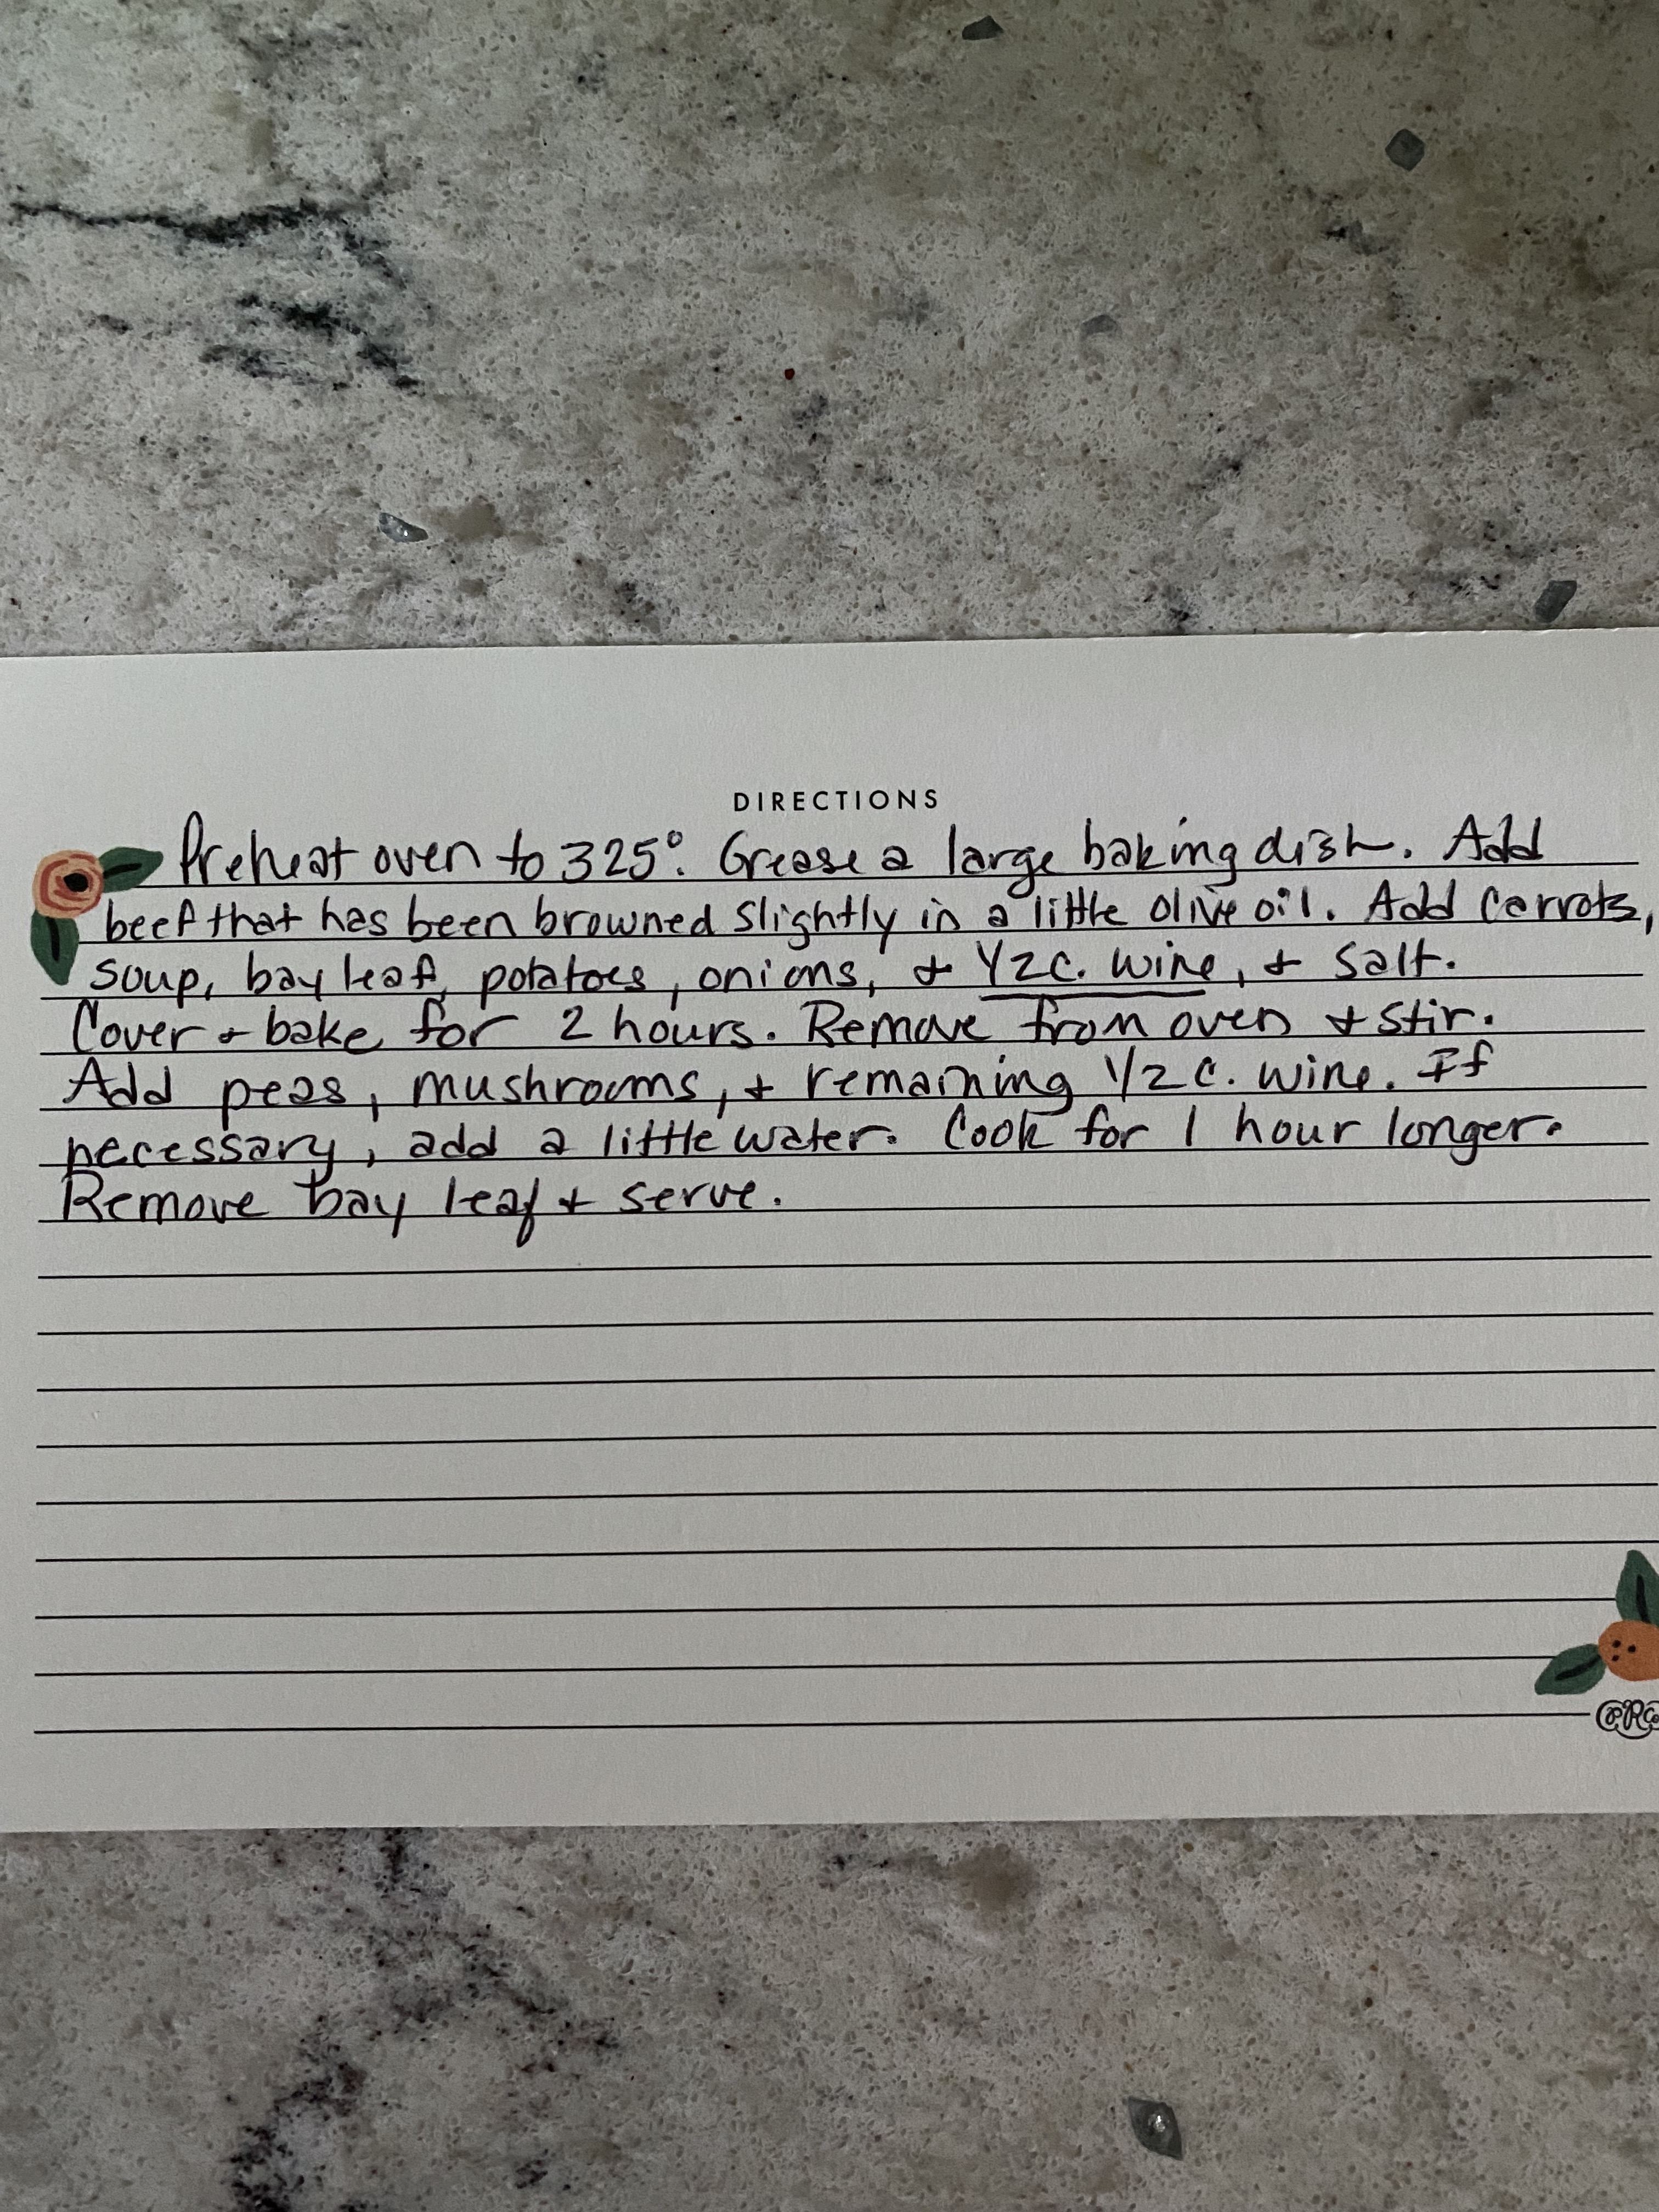 DIRECTIONS
Preheat oven to 325°. Grease a large baking dish. Add
beef that has been browned slightly in a little olive oil. Add carrots,
soup, bay leaf, potatoes, onions, + 1/2 c. wine, + salt.
Cover + bake for 2 hours. Remove from oven + stir.
Add peas, mushrooms, + remaining 1/2 c. wine. If
necessary, add a little water. Cook for 1 hour longer.
Remove bay leaf + serve.